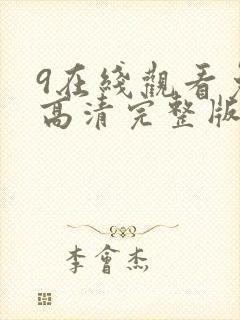 9在綫觀看免
高清完整版
李會杰